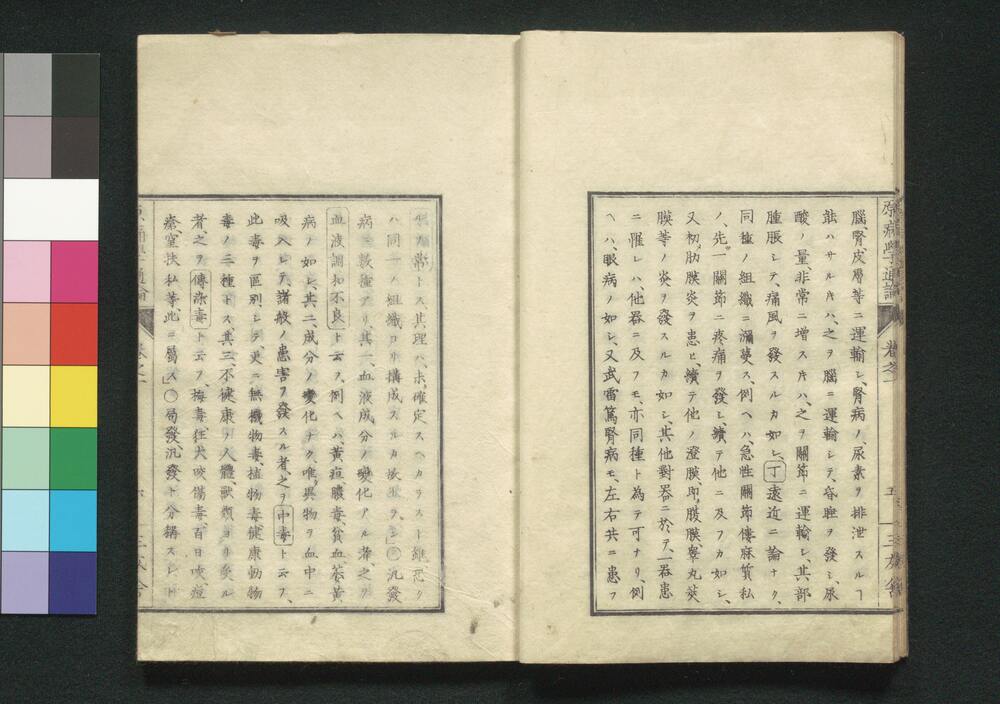 原病學通論
卷之一
三友舍
腦、腎、皮膚等ニ運輸シ、腎病ノ、尿素ヲ排泄スルヿ
能ハサルキハ、之ヲ腦ニ運輸シテ、昏睡ヲ發シ、尿
酸ノ量非常ニ增スキハ、之ヲ關節ニ運輸シ、其部
腫脹シテ、痛風ヲ發スルカ如シ、丁遠近ニ論ナク、
同種ノ組織ニ瀰蔓ス、例ヘハ、急性關節僂麻質私
ノ、先ツ一關節ニ疼痛ヲ發シ、續テ他ニ及フカ如シ、
又初、肋膜炎ヲ患ヒ、續テ他ノ澄膜、即、腹膜、睾丸莢
膜等ノ炎ヲ發スルカ如シ、其他對器ニ於テ、一器患
ニ罹レハ、他器ニ及フモ、亦同種ト為テ可ナリ、例
ヘハ、眼病ノ如シ、又武雷篤腎病モ、左右共ニ患フ
常トス其理ハ、未確定スヘカラスト雖恐ク
ハ同一ノ組織ヨリ構成スルカ故ナラン」〇汎發
病ニ數種アリ、其一、血液成分ノ變化アル者之ヲ
血液調和不良ト云フ、例ヘハ、黃疸膿毒、貧血萎黃
病ノ如シ、其二、成分ノ變化ナク、唯異物ヲ血中ニ
吸入シテ、諸般ノ患害ヲ發スル者、之ヲ中毒ト云フ、
此毒ヲ區別シテ更ニ無機物毒、植物毒健康動物
毒ノ三種トス、其三、不健康ノ人體、獸類ヨリ發ル
者之ヲ傳染毒ト云フ、梅毒、狂犬咬傷毒、百日咳、痘
瘡、窒扶私等、此ニ屬ス」〇局發、汎發ト分稱スレト